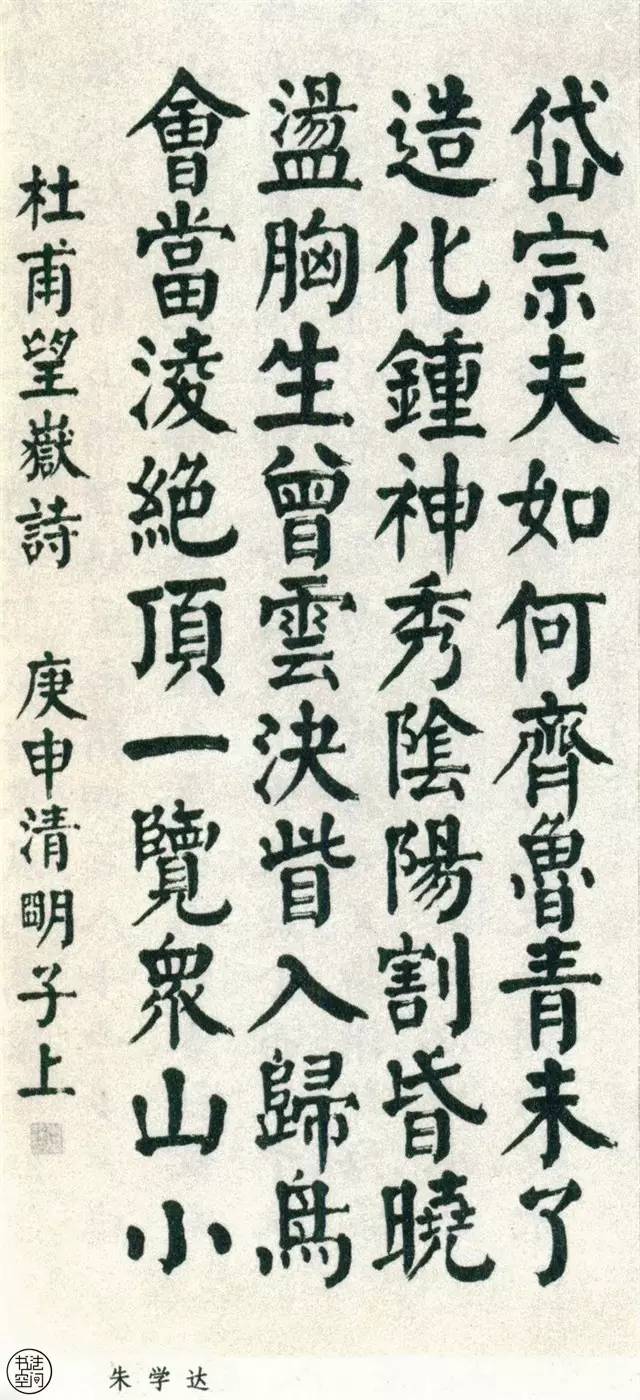 岱宗夫如何齊魯青未了
造化鍾神秀陰陽割昏曉
盪胸生曾雲決眥入歸鳥
會當淩絕頂一覽眾山小
杜甫望嶽詩 庚申清明子上
书法空间
朱学达